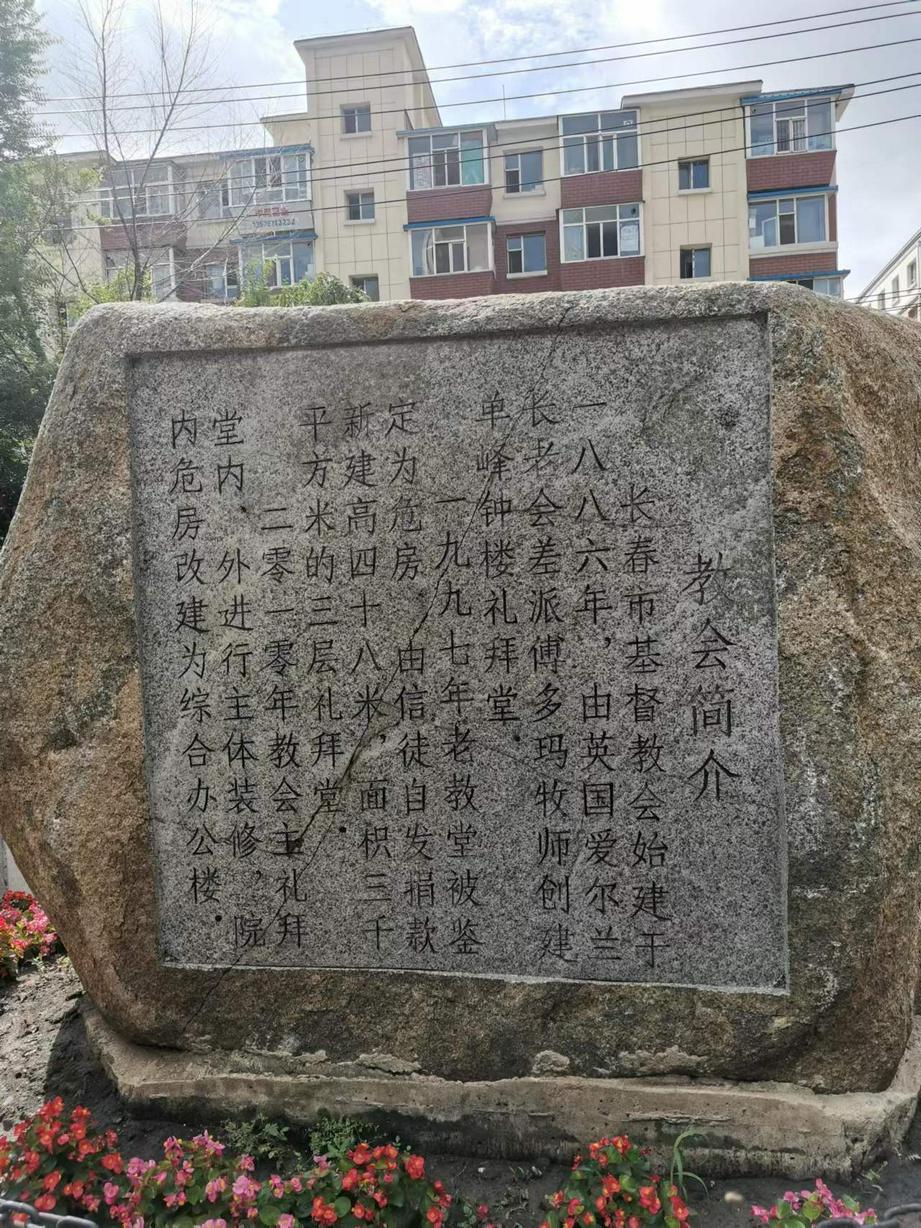 教会简介
长春市基督教会始建于
一八八六年,由英国爱尔兰
长老会差派傅多玛牧师创建
单峰钟楼礼拜堂.
一九九七年老教堂被鉴
定为危房.由信徒自发捐款
新建高四十八米,面积三千
平方米的三层礼拜堂.
二零一零年教会主礼拜
堂内.外进行主体装修,院
内危房改建为综合办公楼.